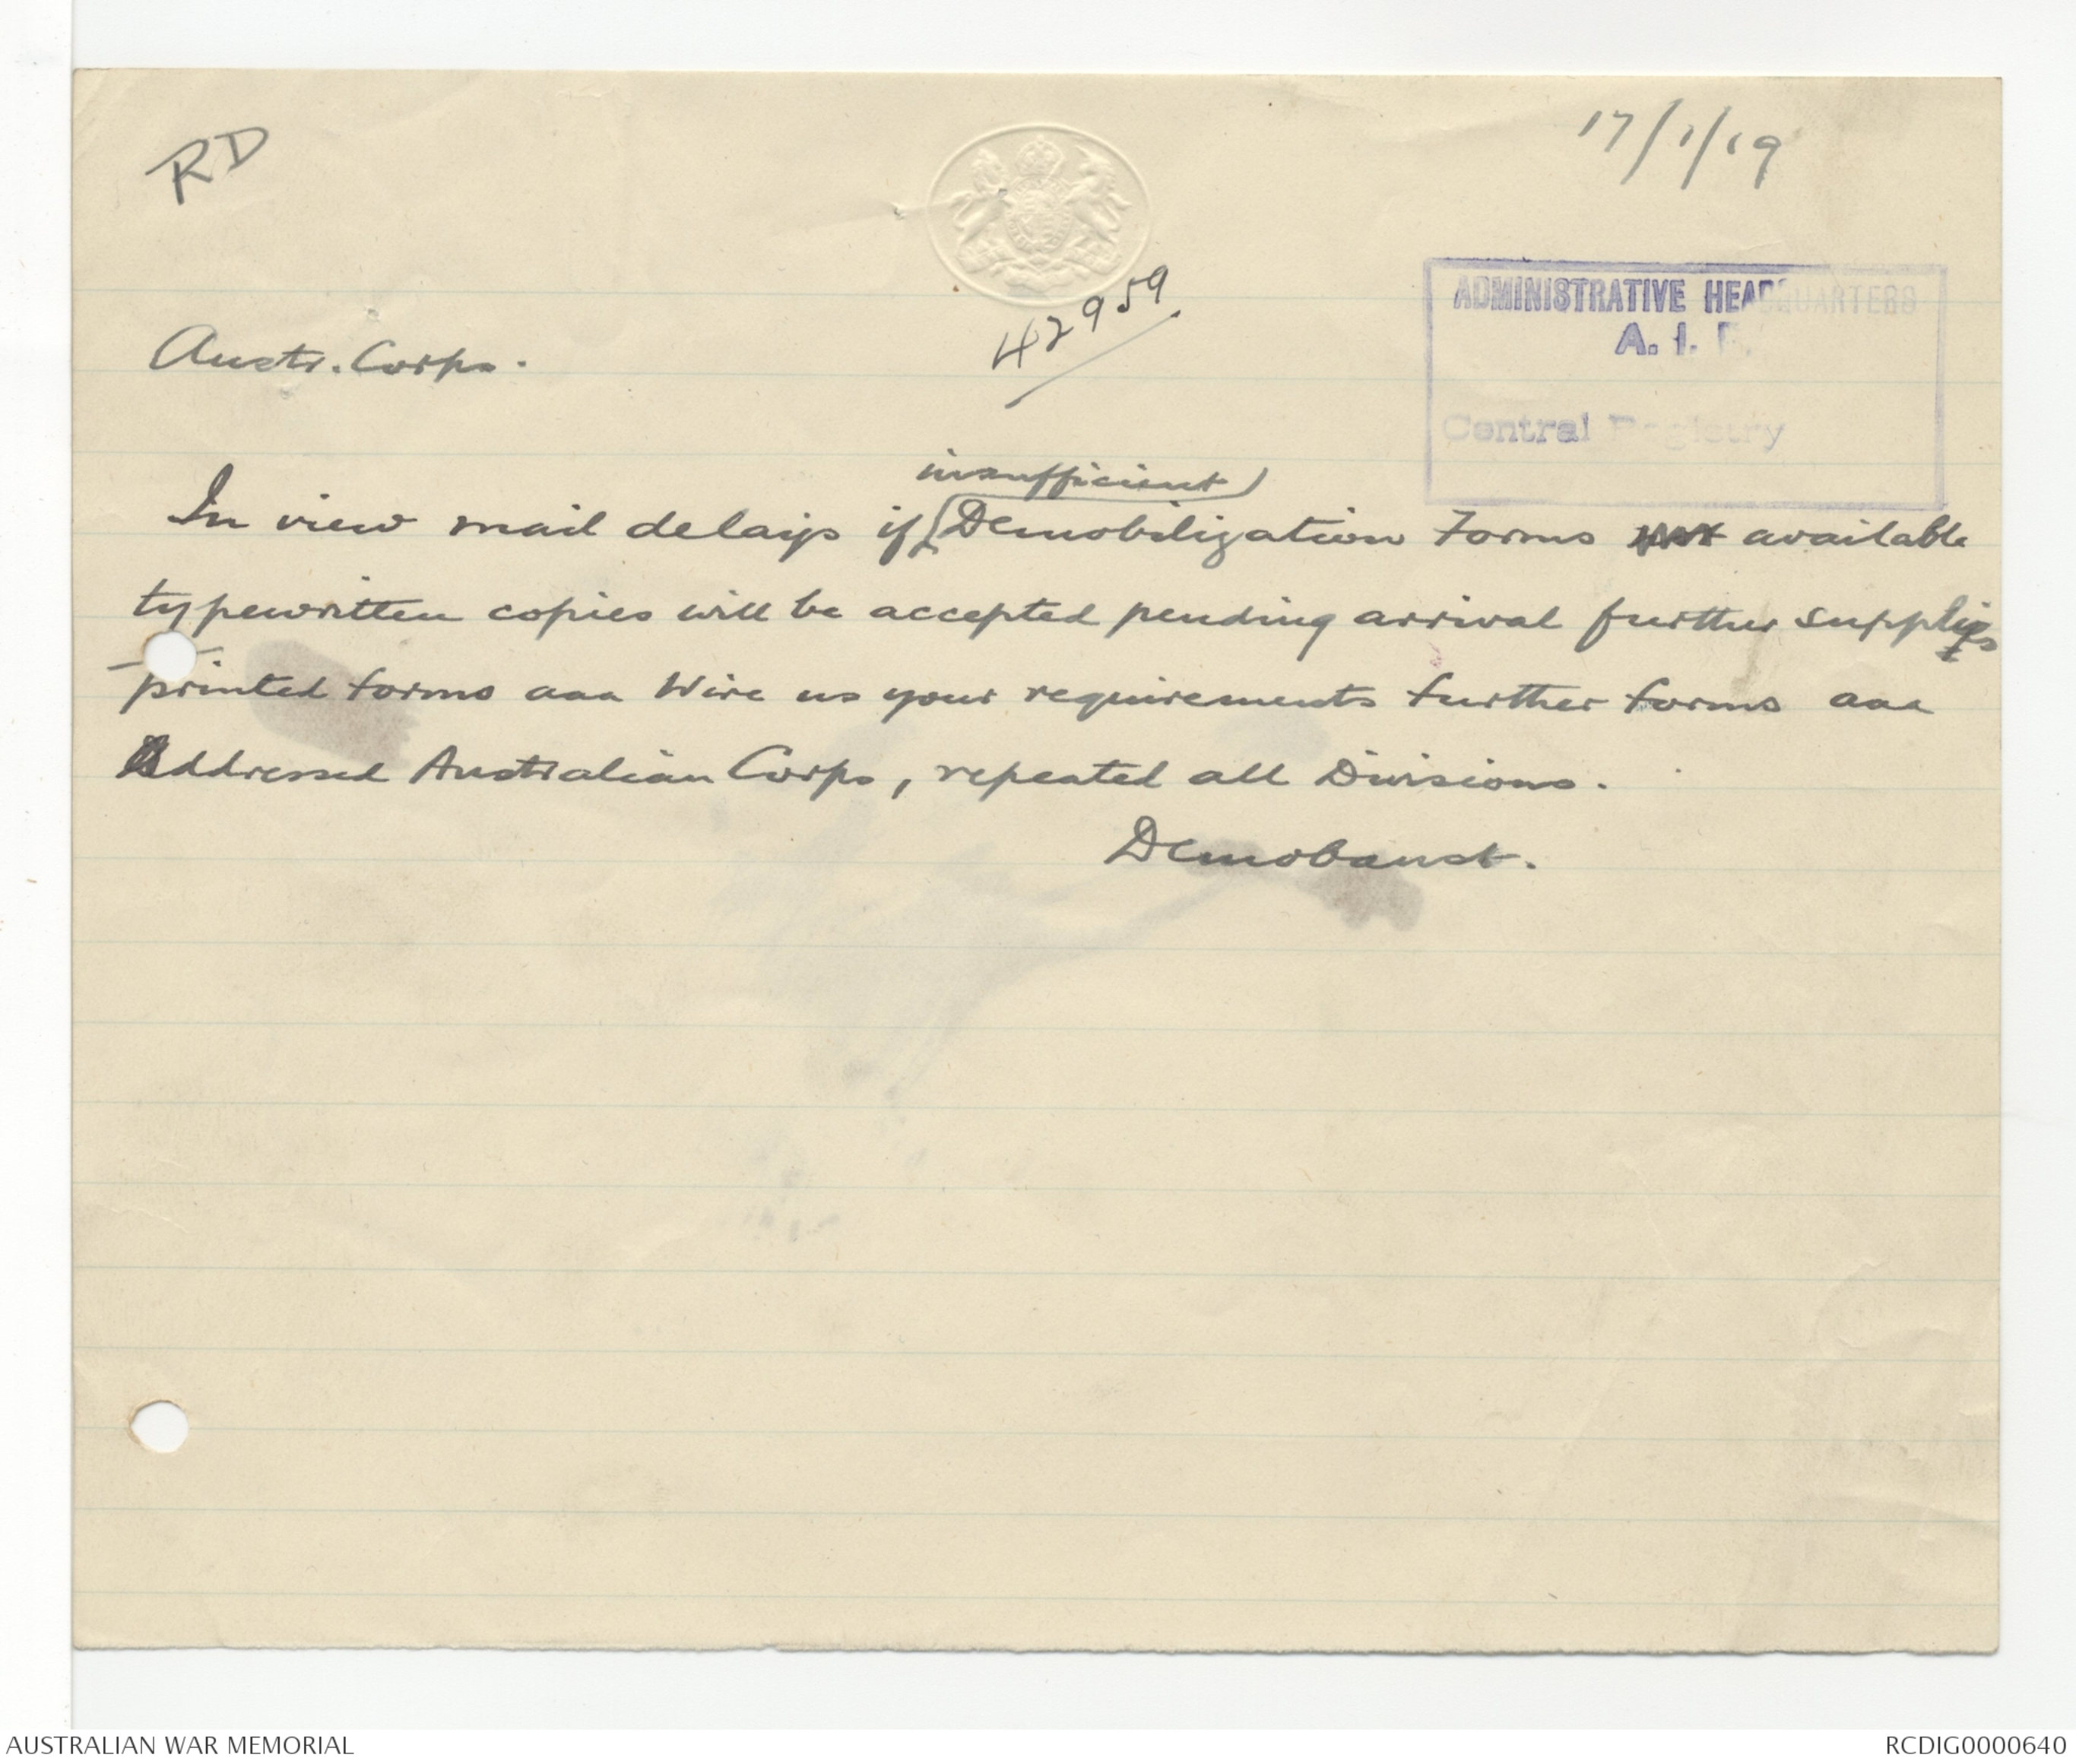 RD
17/1/19
42959
ADMINISTRATIVE HEADQUARTERS
A. I. F.
Central Registry
Austr. Corps.
insufficient
In view mail delays if Demobilization Forms not available
typewritten copies will be accepted pending arrival further supplies
printed forms aaa Wire us your requirements further forms aaa
Addressed Australian Corps, repeated all Divisions.
Demobaust.
AUSTRALIAN WAR MEMORIAL
RCDIG0000640